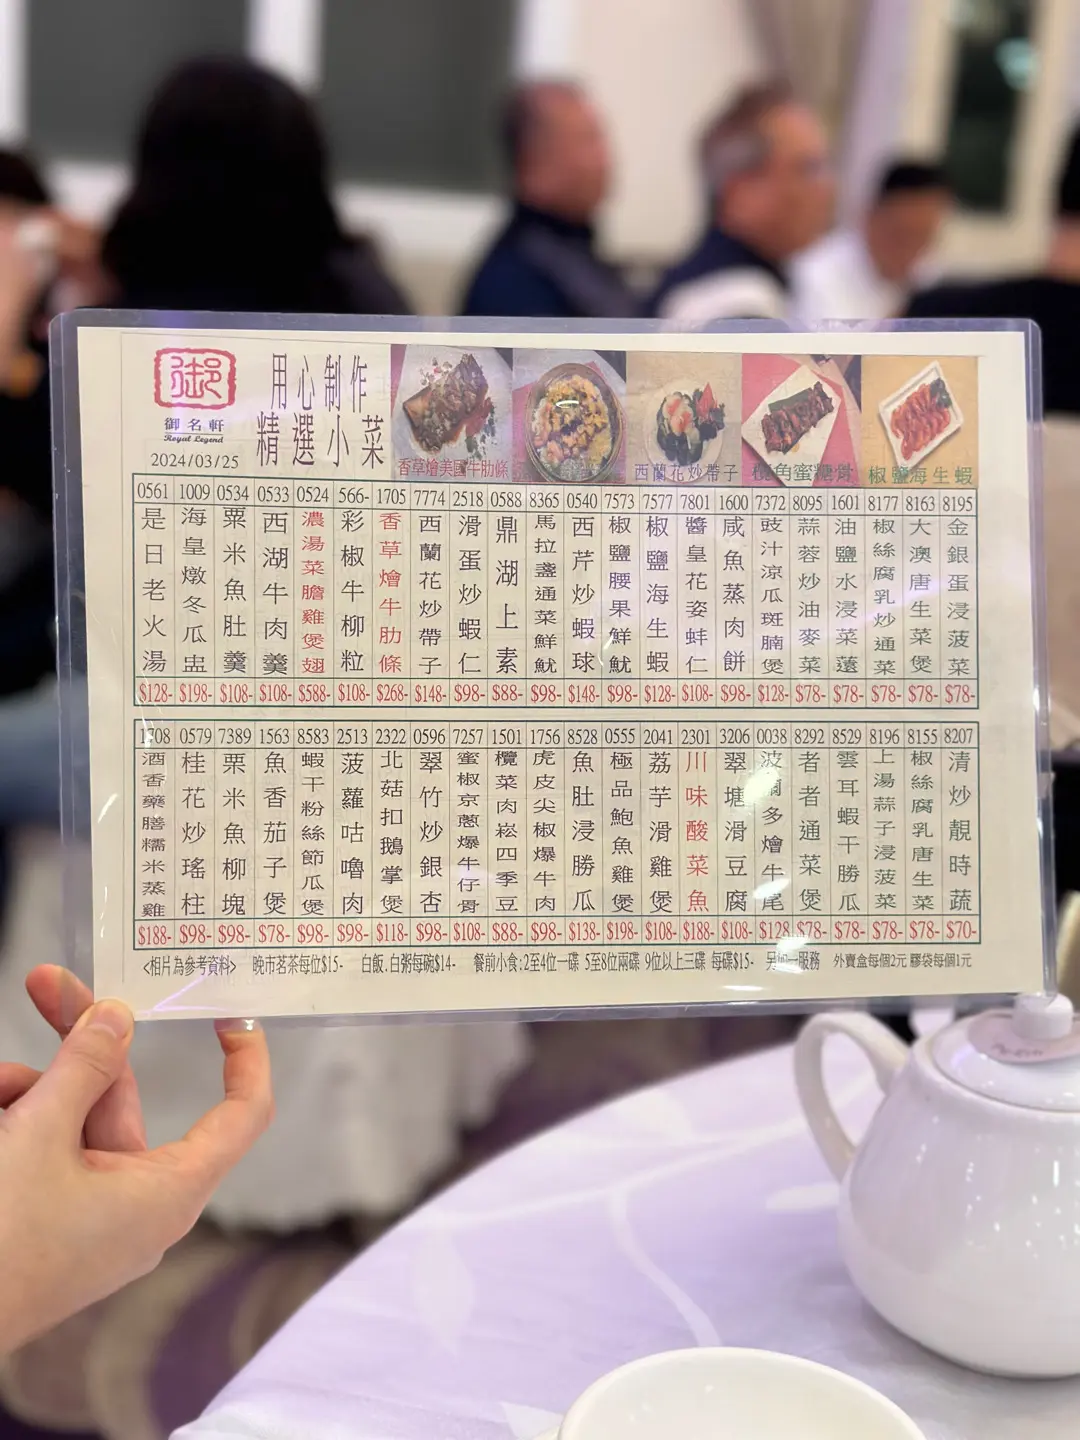 御
御名軒
Royal Legend
2024/03/25
用心制作
精選小菜
香草燴美國牛肋條
西蘭花炒帶子
蜜糖骨
椒鹽海生蝦
0561 1009 0534 0533 0524 566- 1705 7774 2518 0588 8365 0540 7573 7577 7801 1600 7372 8095 1601 8177 8163 8195
是日老火湯
海皇燉冬瓜盅
粟米魚肚羹
西湖牛肉羹
濃湯菜膽雞煲翅
彩椒牛柳粒
香草燴牛肋條
西蘭花炒帶子
滑蛋炒蝦仁
鼎湖上素
馬拉盞通菜鮮魷
西芹炒蝦球
椒鹽腰果鮮魷
椒鹽海生蝦
醬皇花姿蚌仁
咸魚蒸肉餅
豉汁涼瓜斑腩煲
蒜蓉炒油麥菜
油鹽水浸菜薳
椒絲腐乳炒通菜
大澳唐生菜煲
金銀蛋浸菠菜
$128- $198- $108- $108- $588- $108- $268- $148- $98- $88- $98- $148- $98- $128- $108- $98- $128- $78- $78- $78- $78- $78-
1708 0579 7389 1563 8583 2513 2322 0596 7257 1501 1756 8528 0555 2041 2301 3206 0038 8292 8529 8196 8155 8207
酒香藥膳糯米蒸雞
桂花炒瑤柱
粟米魚柳塊
魚香茄子煲
蝦干粉絲節瓜煲
菠蘿咕嚕肉
北菇扣鵝掌煲
翠竹炒銀杏
蜜椒京蔥爆牛仔骨
欖菜肉崧四季豆
虎皮尖椒爆牛肉
魚肚浸勝瓜
極品鮑魚雞煲
荔芋滑雞煲
川味酸菜魚
翠塘滑豆腐
波爾多燴牛尾
者者通菜煲
雲耳蝦干勝瓜
上湯蒜子浸菠菜
椒絲腐乳唐生菜
清炒靚時蔬
$188- $98- $98- $78- $98- $98- $118- $98- $108- $88- $98- $138- $198- $108- $188- $108- $128 $78- $78- $78- $78- $70-
<相片為參考資料> 晚市茗茶每位$15- 白飯.白粥每碗$14- 餐前小食:2至4位一碟 5至8位兩碟 9位以上三碟 每碟$15- 另加一服務 外賣盒每個2元 膠袋每個1元